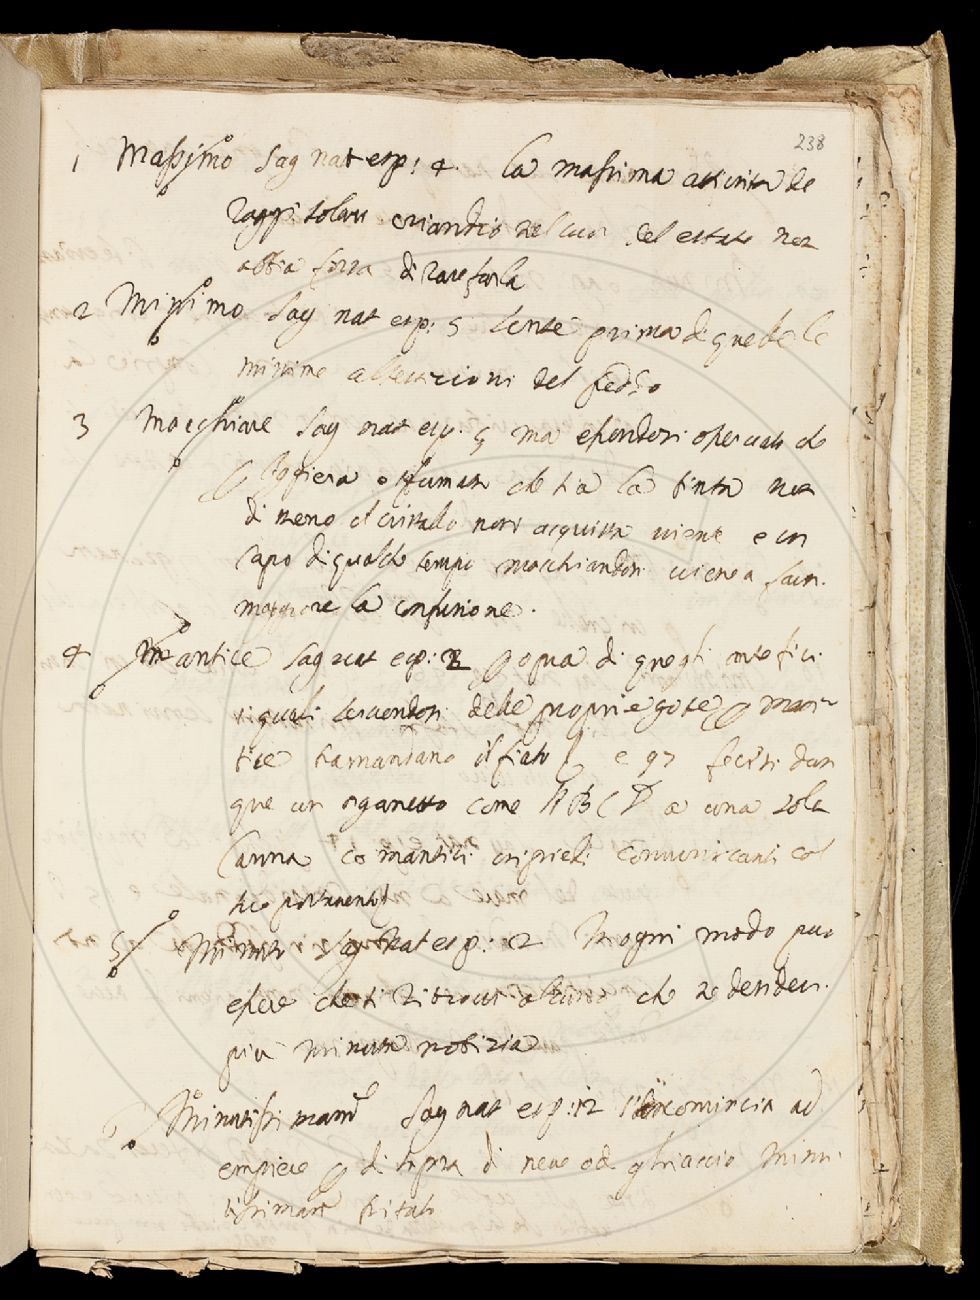 238
1 Massimo Sag nat esp: 4. la massima attività de
raggi solari eziandio nel cuor del estate non
abbia forza di rarefarla
2 Minimo Sag nat esp: 5 sente prima di quelle le
minime alterazioni del freddo
3 Macchiare Sag nat esp. 5 ma essendosi osservato che
p leggiera e sfumata che sia la tinta non
di meno el cristallo non acquista niente e con
capo di qualche tempo macchiandosi viene a farsi
maggiore la confusione.
4 Mantice Sag nat esp: 2 p opra di quegli artefici
i quali servendosi delle proprie gote p man-
tice tramandano il fiato e 97 fecesi dun
que un organetto come ABCD a una sola
Canna co mantici e i piedi comunicanti col
5 Minuta Sag Nat esp: 2 In ogni modo può
essere che si ritrovi alcuno che ne desideri
più minuta notizia
6 Minutissimam Sag nat esp: 12 s'incomincia ad
empiere p di sopra di neve o di ghiaccio Minu-
tissimam tritato